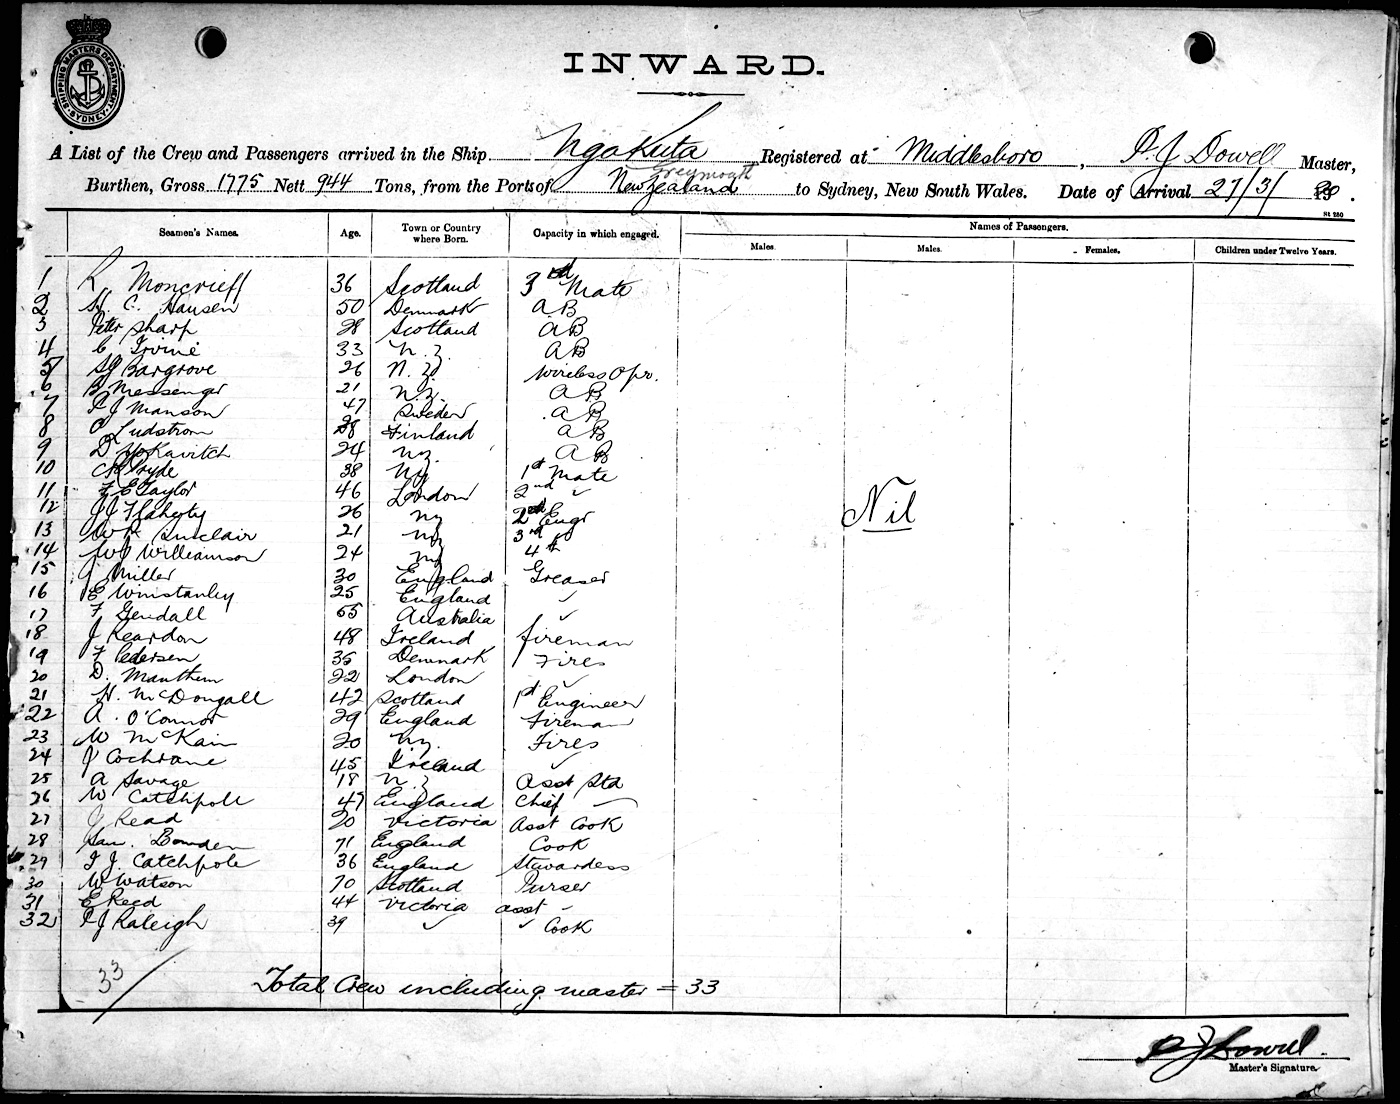 SHIPPING MASTERS DEPARTMENT
SYDNEY
INWARD.
A List of the Crew and Passengers arrived in the Ship Ngakuta Registered at Middlesboro, P. J Dowell Master,
Greymouth
Burthen, Gross 1775 Nett 944 Tons, from the Port of New Zealand to Sydney, New South Wales. Date of Arrival 27/3/ 1920.
St 250
Seamen's Names. Age. Town or Country where Born. Capacity in which engaged. Names of Passengers.
Males. Males. Females. Children under Twelve Years.
1 R Moncrieff 36 Scotland 3rd Mate
2 H. C. Hansen 50 Denmark AB
3 Peter Sharp 28 Scotland AB
4 C Irvine 33 N.Z. AB
5 Bargrove 26 N.Z Wireless Opr.
6 B Messenger 21 N.Z. AB
7 P J Manson 47 Sweden AB
8 C Ludstrom 28 Finland AB
9 D 24 NZ. AB
10 Pryde 38 NZ 1st Mate
11 F E Taylor 46 London 2nd "
12 J J Flaherty 26 NZ 2nd Engr
13 W Sinclair 21 NZ 3rd "
14 W J Williamson 24 NZ 4th
15 J Miller 30 England Greaser
16 E Winstanley 25 England "
17 F Gendall 55 Australia "
18 J Reardon 48 Ireland fireman
19 F Pedersen 35 Denmark Fires
20 D. Manthem 22 London "
21 H. McDongall 42 Scotland 1st Engineer
22 A. O'Connor 29 England Fireman
23 W McKain 20 NZ. Fires
24 J Cochrane 45 Ireland "
25 A Savage 18 N.Z Asst Std
26 W Catchpole 47 England Chief "
27 J Read 20 Victoria Asst Cook
28 Sam. Bowden 71 England Cook
29 I J. Catchpole 36 England Stewardess
30 W Watson 70 Scotland Purser
31 E Reed 44 Victoria asst "
32 P J Raleigh 39 " " Cook
Nil
33
Total Crew including master = 33
P J Dowell
Master's Signature.